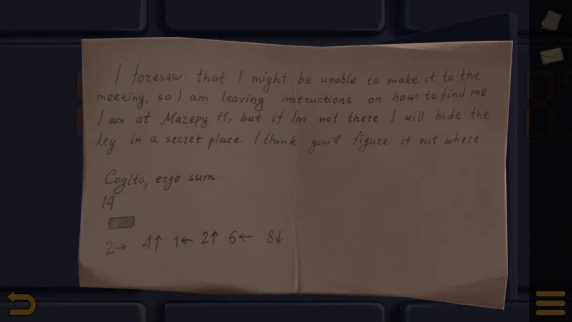 I foresaw that I might be unable to make it to the
meeting, so I am leaving instructions on how to find me.
I am at Mazepy 11, but if I'm not there I will hide the
key in a secret place. I think you'll figure it out where.
Cogito, ergo sum
14
2→ 4↑ 1← 2↑ 6← 8↓